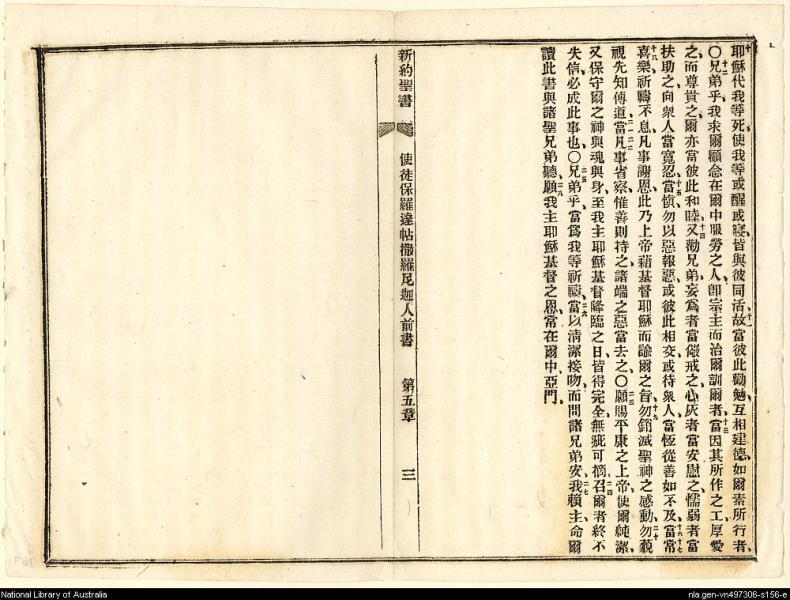 耶穌代我等死使我等或醒或寢皆與彼同活故當彼此勸勉互相建德如爾素所行者
〇兄弟乎我求爾顧念在爾中服勞之人卽宗主而治爾訓爾者當因其所作之工厚愛
之而尊貴之爾亦當彼此和睦又勸兄弟妄爲者當儆戒之心灰者當安慰之懦弱者當
扶助之向衆人當寬忍當愼勿以惡報惡或彼此相交或待衆人當恆從善如不及當常
喜樂祈禱不息凡事謝恩此乃上帝藉基督耶穌而諭爾之旨勿銷滅聖神之感動勿藐
視先知傳道當凡事省察惟善則持之諸端之惡當去之〇願賜平康之上帝使爾純潔
又保守爾之神與魂與身至我主耶穌基督降臨之日皆得完全無疵可摘召爾者終不
失信必成此事也〇兄弟乎當爲我等祈禱當以淸潔接吻而問諸兄弟安我賴主命爾
讀此書與諸聖兄弟聽願我主耶穌基督之恩常在爾中亞門
新約聖書 使徒保羅達帖撒羅尼迦人前書 第五章 三
National Library of Australia
nla.gen-vn497306-s156-e